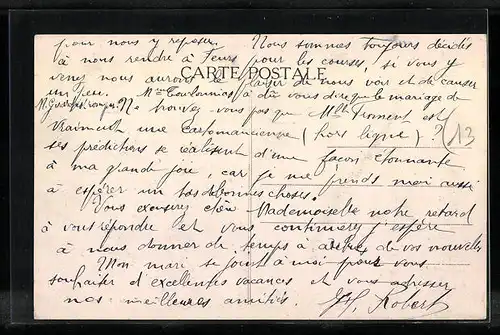 pour nous y reposer. Nous sommes toujours décidés
à nous rendre à Feurs pour les courses, si vous y
venez nous aurons le plaisir de nous voir et de causer
CARTE POSTALE
un peu. Mme a dû vous dire que le mariage de
Ne trouvez vous pas que Melle Froment est
vraiment une Cartomancienne (hors ligne)? 13
ses prédictions se réalisent d'une façon étonnante
à ma grande joie, car je me prends moi aussi
à espérer un tas de bonnes choses.
Vous excuserez chère Mademoiselle notre retard
à vous répondre et vous continuerez j'espère
à nous donner de temps à autres de vos nouvelles
Mon mari se joint à moi pour vous
souhaiter d'excellentes vacances et vous adresser
nos meilleures amitiés. Robert